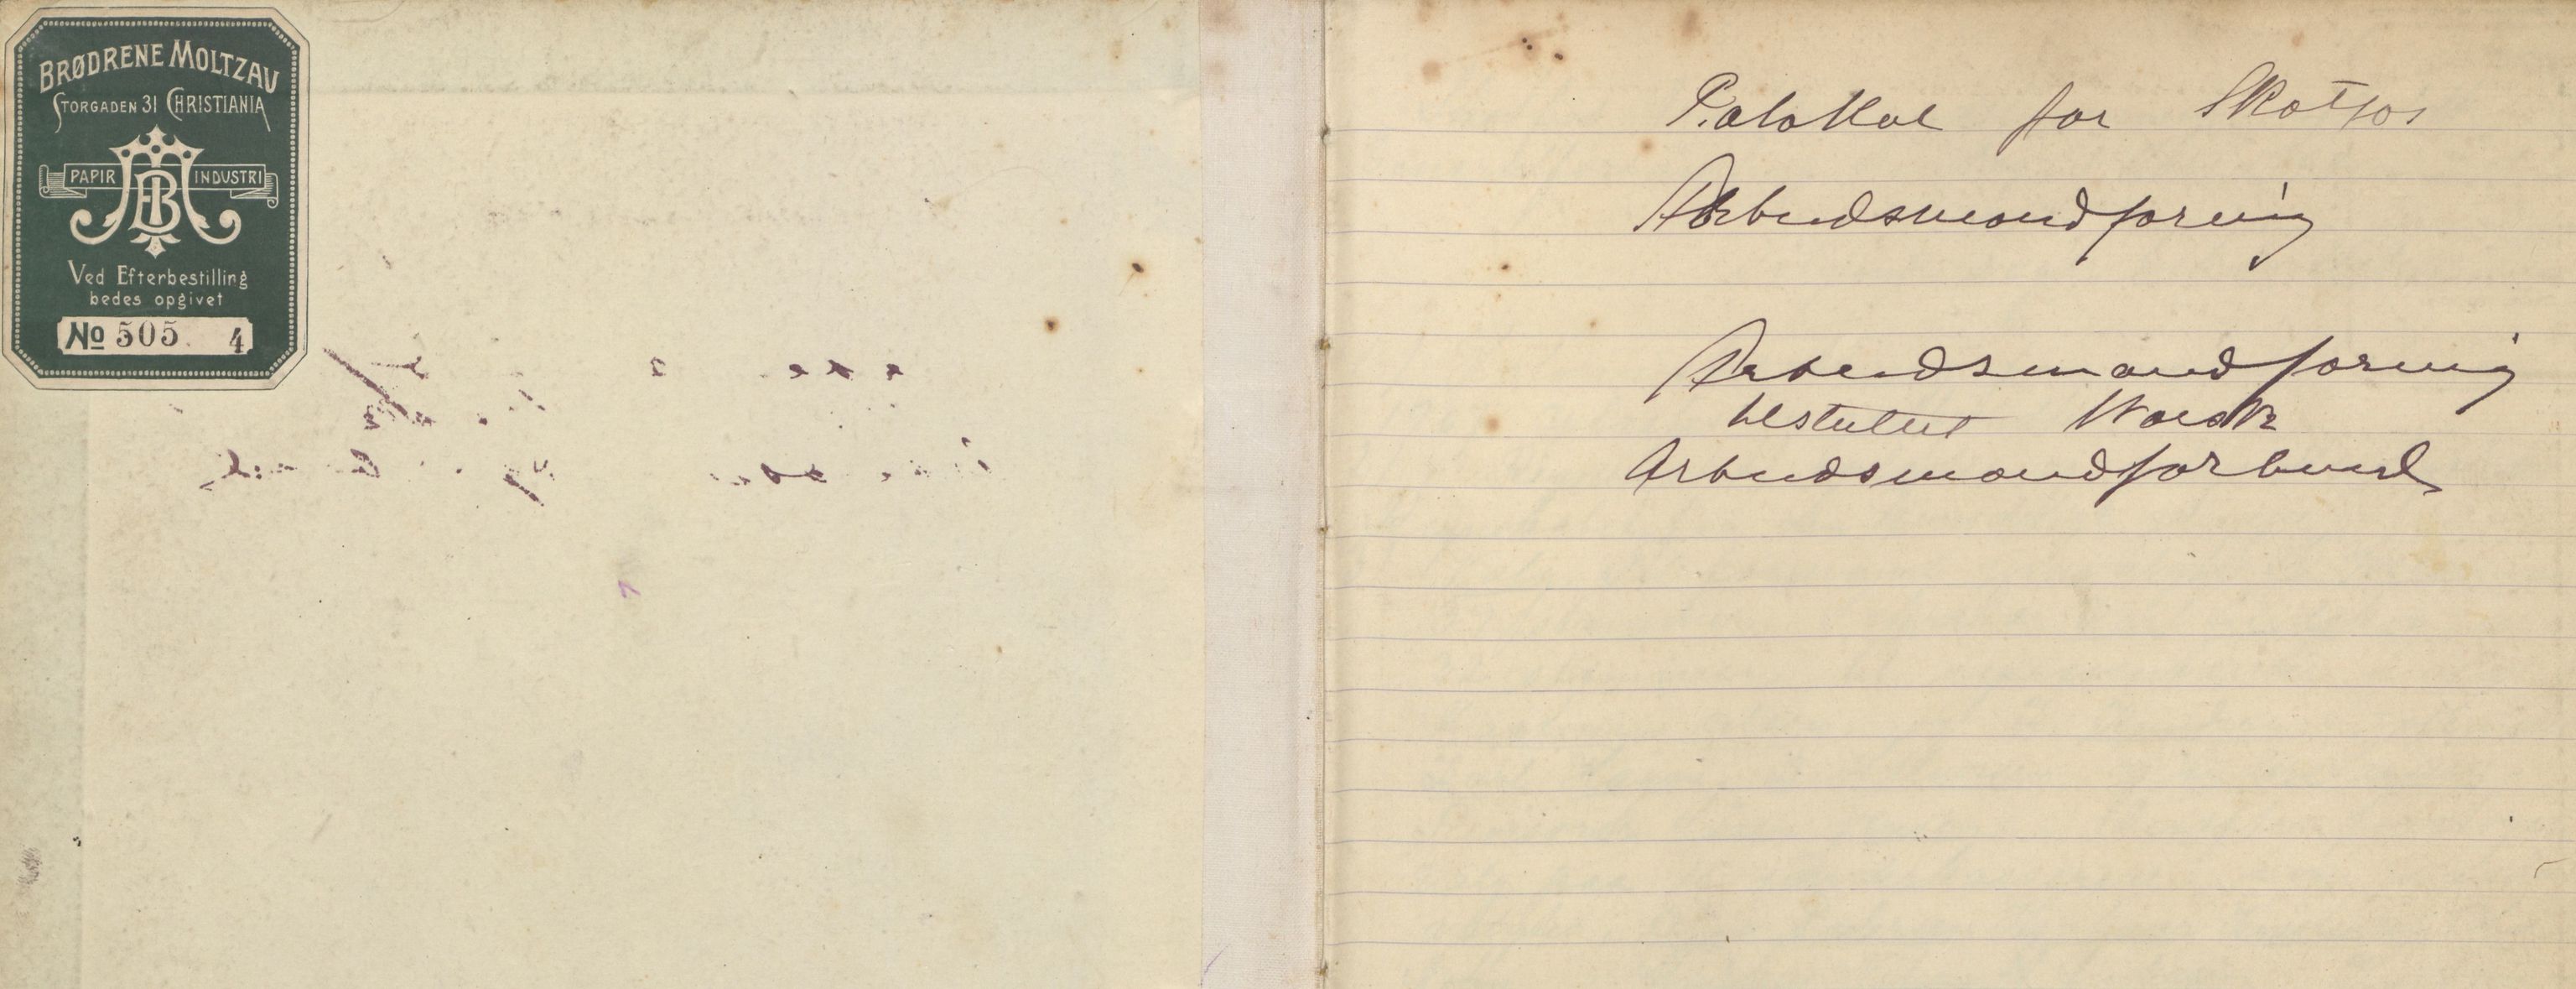 BRØDRENE MOLTZAU
STORGADEN 31 CHRISTIANIA
PAPIR INDUSTRI
Ved Efterbestilling
bedes opgivet
No 505. 4
Protokol for Skotfos
Arbeidsmandforenig
Arbeidsmandforenig
tilsluttet Norsk
Arbeidsmandforbund